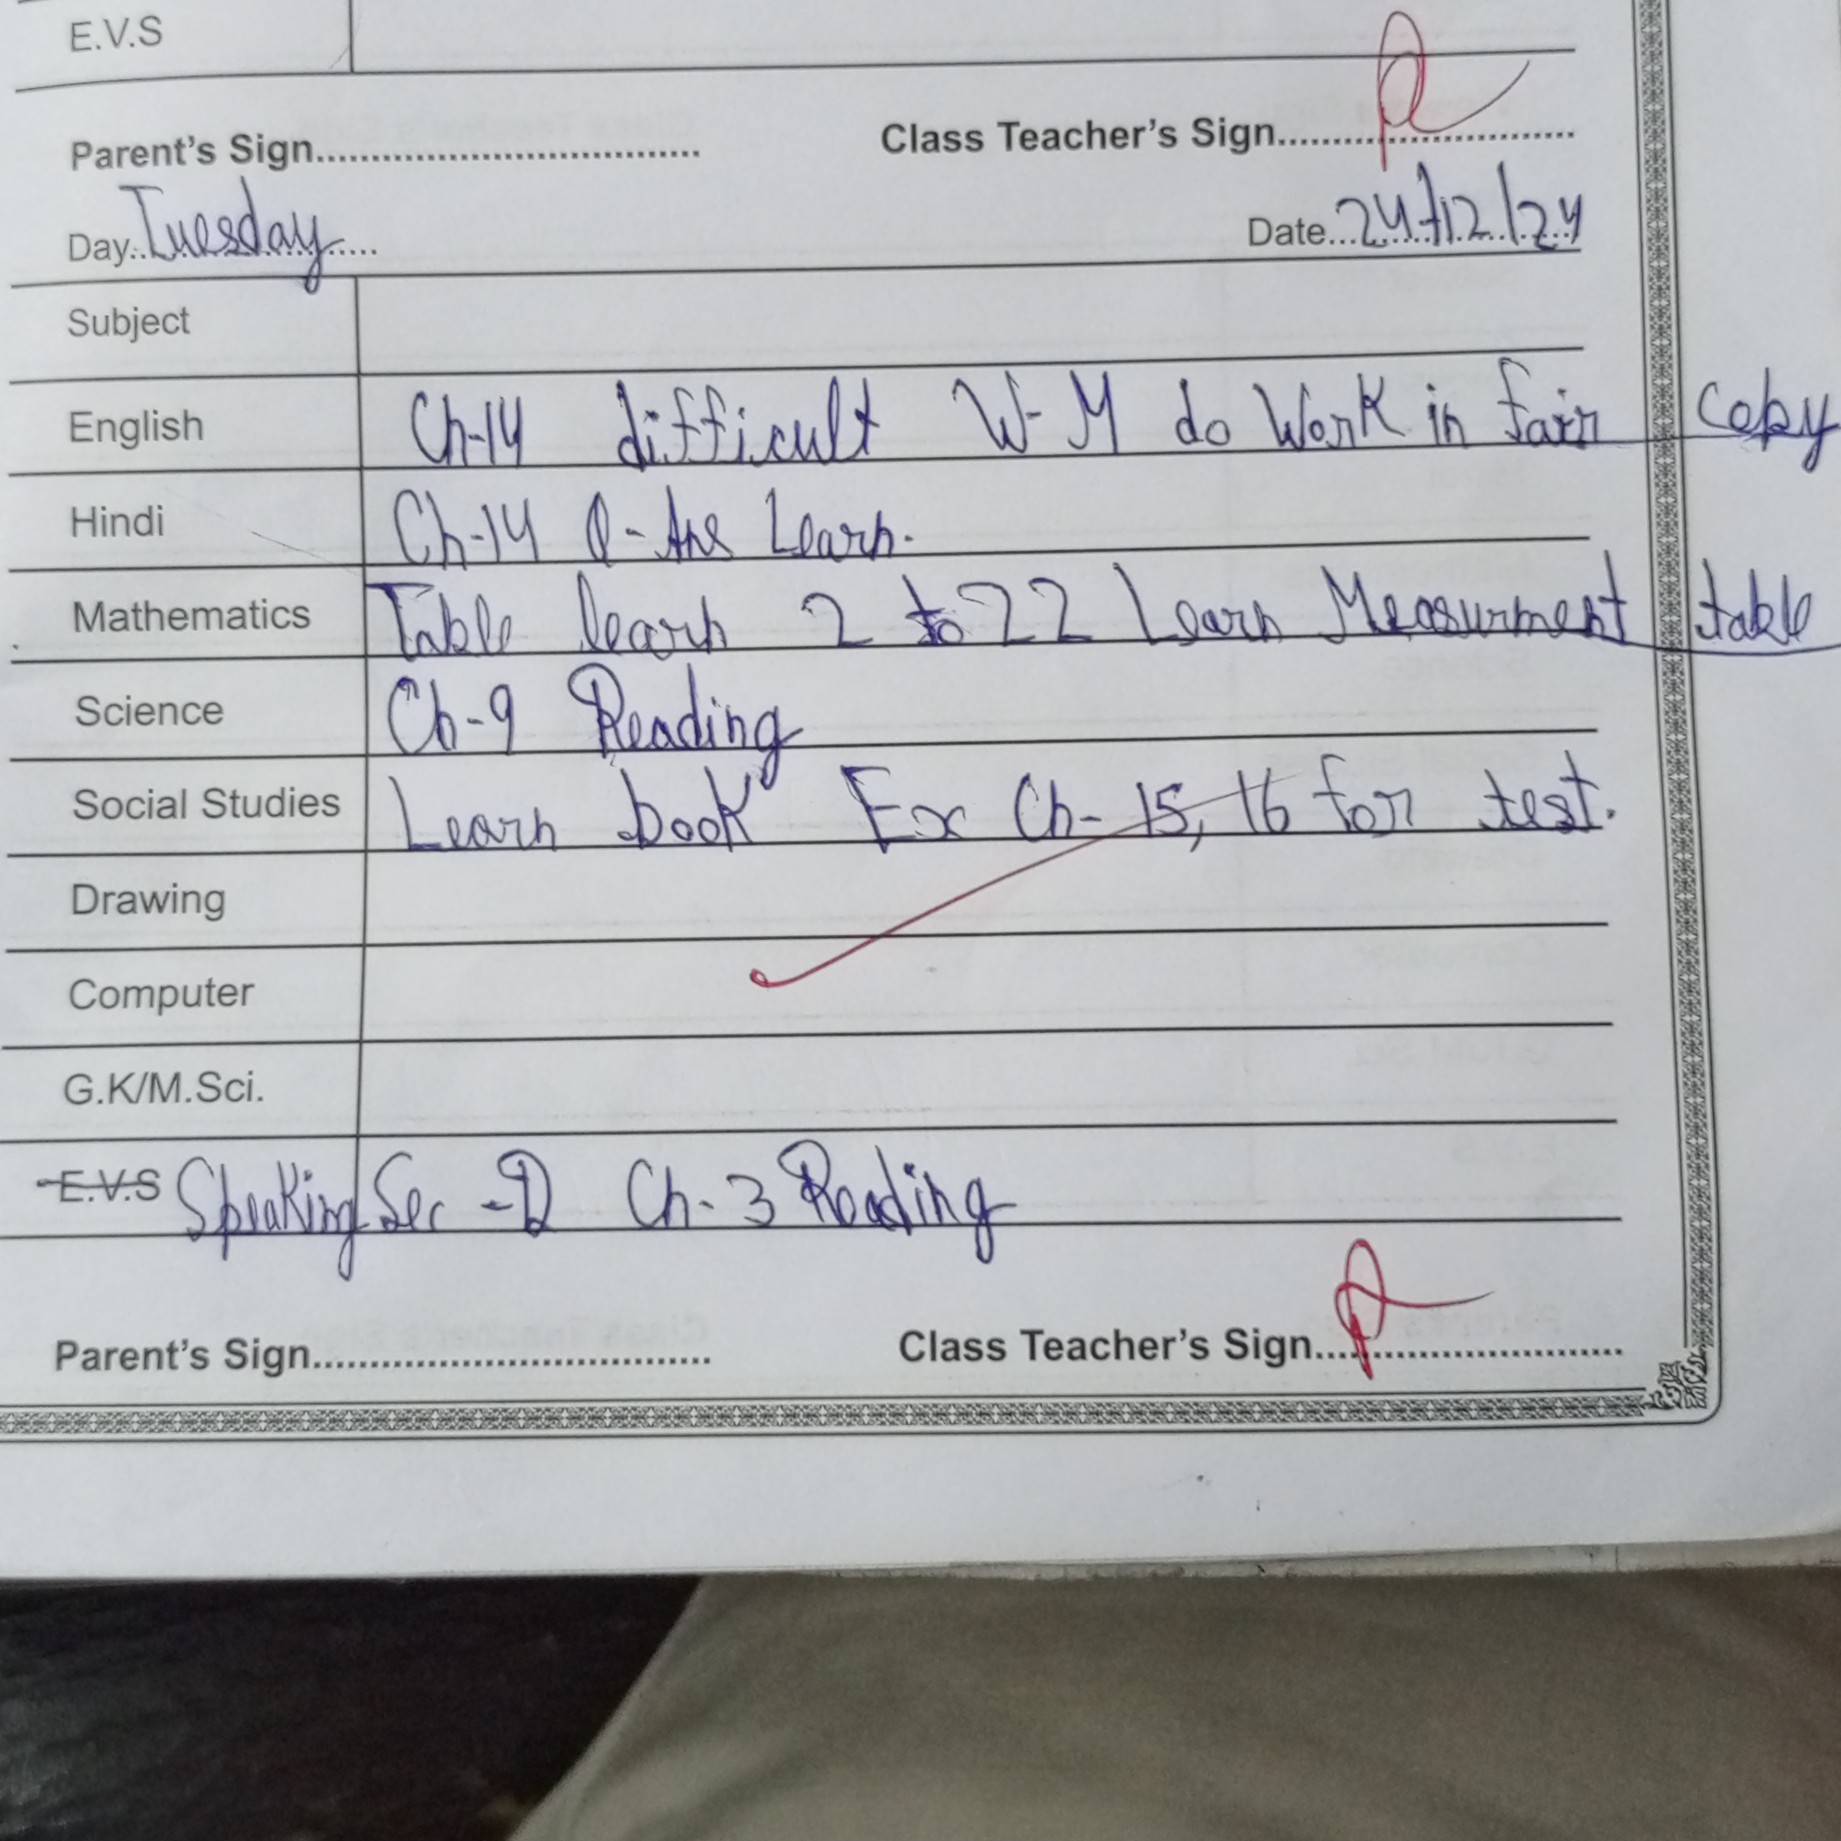 E.V.S
Parent's Sign.................................. Class Teacher's Sign..........................
Day..Tuesday.... Date...24/12/24
Subject
English Ch-14 difficult W-M do Work in fair copy
Hindi Ch-14 Q-Ans Learn.
Mathematics Table learn 2 to 22 Learn Measurment table
Science Ch-9 Reading
Social Studies Learn book Ex Ch-15, 16 for test.
Drawing
Computer
G.K/M.Sci.
E.V.S Speaking Sec-D Ch-3 Reading
Parent's Sign.................................. Class Teacher's Sign..........................